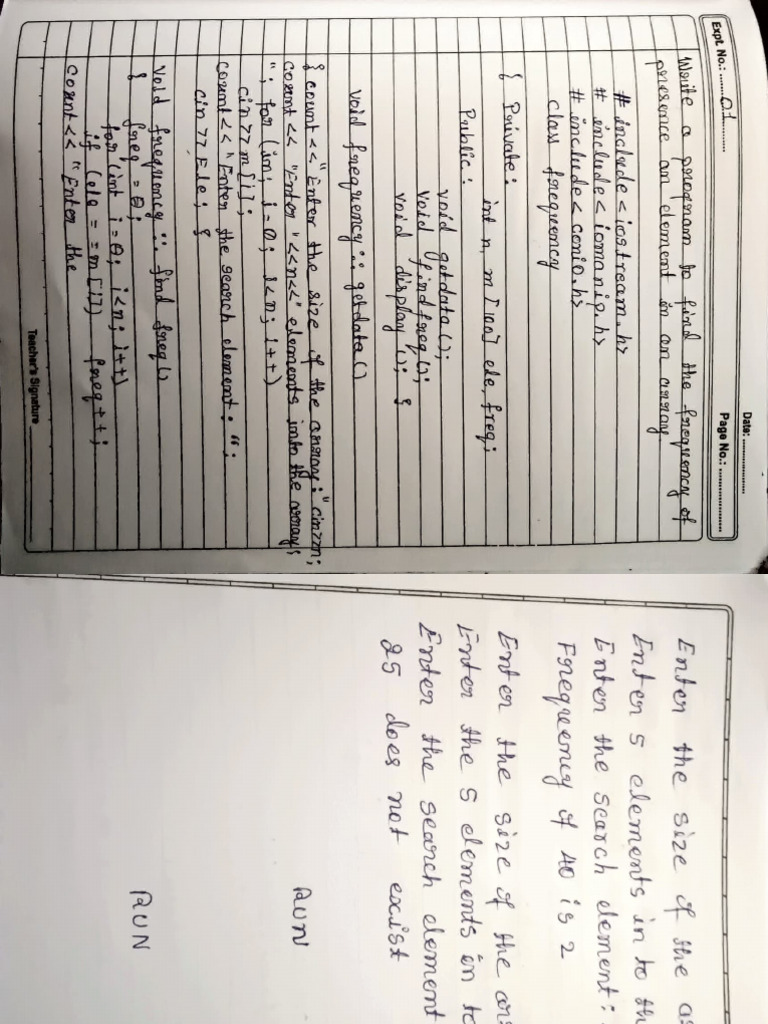 Date: ..................
Expt. No.: ........01..........
Page No.: ..................
Write a program to find the frequency of
presence an element in an array
# include < iostream.h>
# include < iomanip.h>
# include < conio.h>
class frequency
{ Private:
int n, m [100] ele, freq;
Public:
void getdata ();
void findfreq();
void display (); }
void frequency :: getdata ()
{ count << "Enter the size of the array: "cin>>n;
count << "Enter "<<n<<" elements into the array;
"; for (im; i = 0; i<n; i++)
cin>>m[i];
count << "Enter the search element: ";
cin>>Ele; }
void frequency :: find freq()
{ freq = 0;
for (int i = 0; i<n; i++)
if (ele = = m [i]) freq++;
count<< "Enter the
Teacher's Signature
Enter the size of the
Enter 5 elements in to
Enter the search element:
Frequency of 40 is 2
Enter the size of the
Enter the 5 elements in
Enter the search element
25 does not exist
RUN
RUN